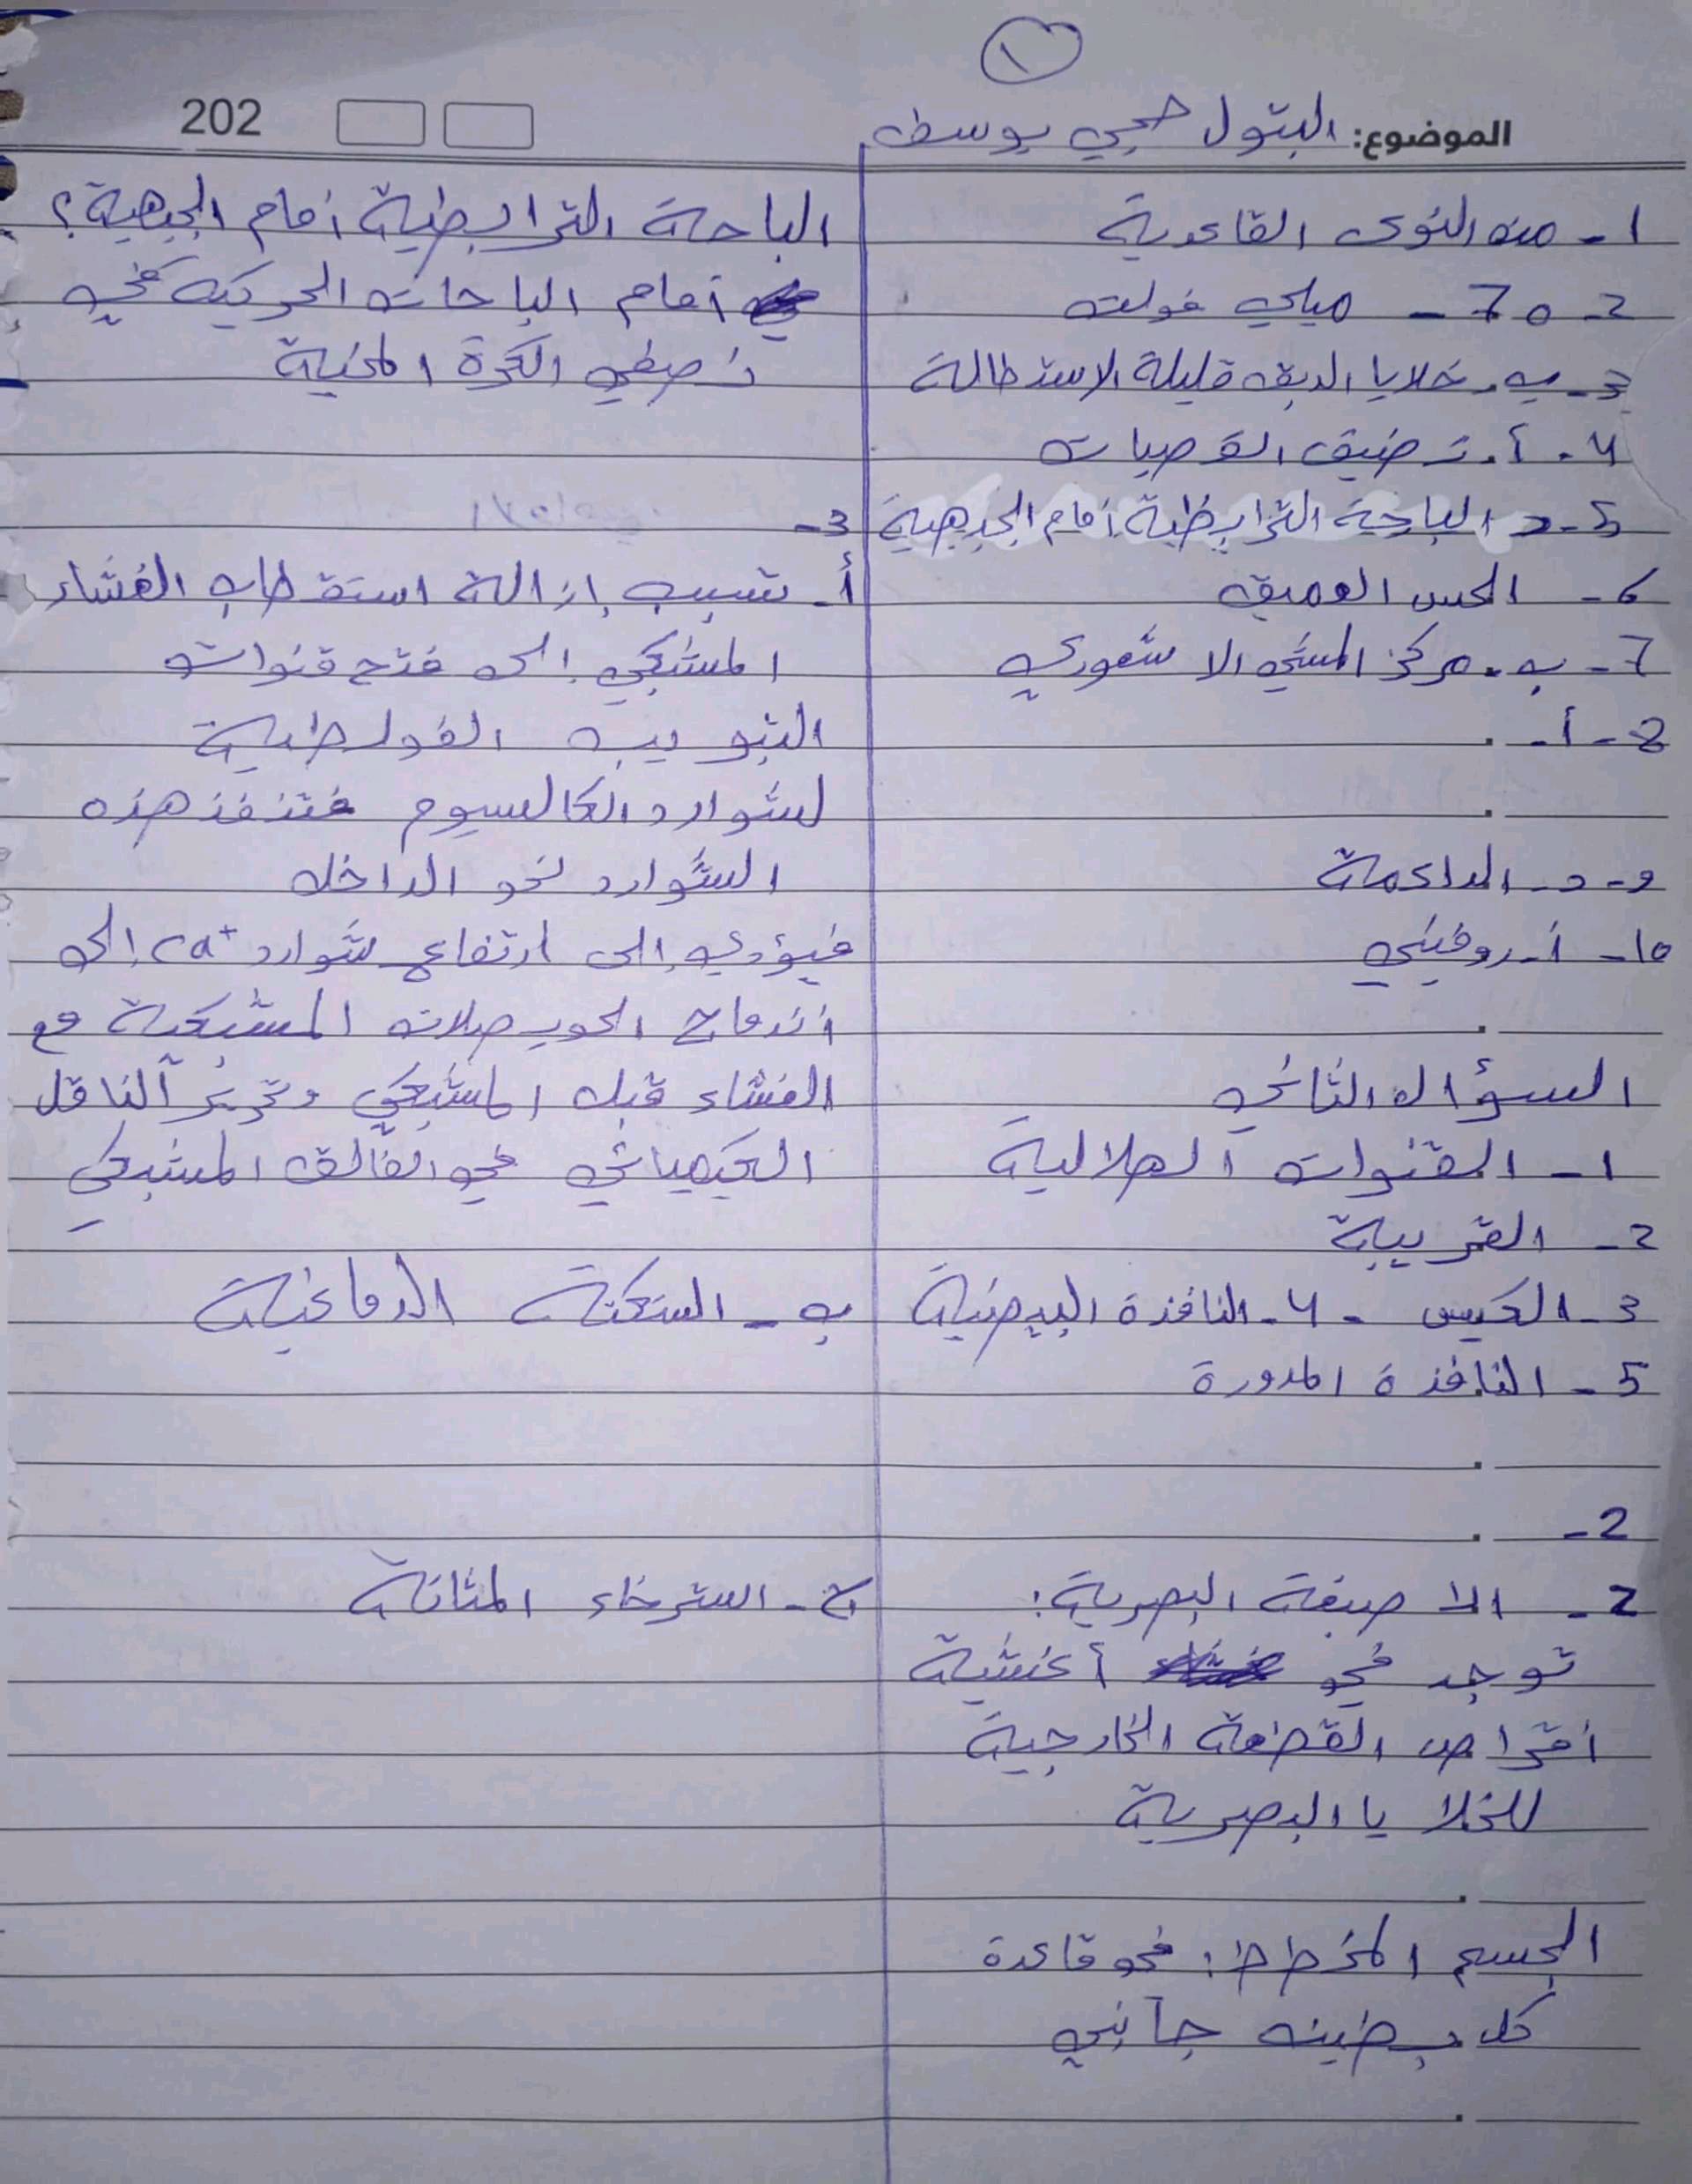 ١
الموضوع: البتول حجي يوسف
202
1- من النوى القاعدية
2- 70 - ميلي فولت
3- ب. خلايا الدبق قليلة الاستطالة
4. أ. تضيق القصبات
5- د الباحة الترابطية أمام الجبهية
6- الحس العميق
7- ب. مركز المشي الاشعوري
8- أ-
9- د- الداعمة
10- أ- روفيني
السؤال الثاني
1- القنوات الهلالية
2- القريبة
3- الكيس - 4- النافذة البيضية
5- النافذة المدورة
2-
2- الاصبغة البصرية:
توجد في أغشية
أقراص القطعة الخارجية
للخلايا البصرية
الجسم المخطط: في قاعدة
كل بطين جانبي
الباحة الترابطية أمام الجبهية؟
أمام الباحات الحركية في
نصفي الكرة المخية
3-
أ- تسبب إزالة استقطاب الغشاء
المشبكي إلى فتح قنوات
التبويب الفولطية
لشوارد الكالسيوم فتنفذ هذه
الشوارد نحو الداخل
فيؤدي إلى ارتفاع شوارد Ca⁺ إلى
اندماج الحويصلات المشبكية مع
الغشاء قبل المشبكي وتحرير الناقل
الكيميائي في الفالق المشبكي
ب- السكتة الدماغية
ج- استرخاء المثانة